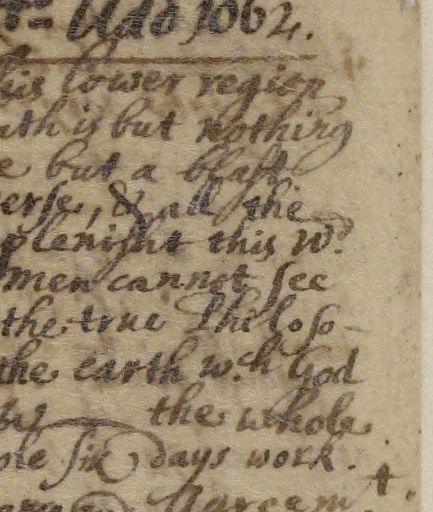 Ado 1662.
his lower region
is but nothing
but a blast
erse, & all the
plenisht this w.d
men cannot see
the true Philoso-
the earth w.ch God
the whole
six days work.